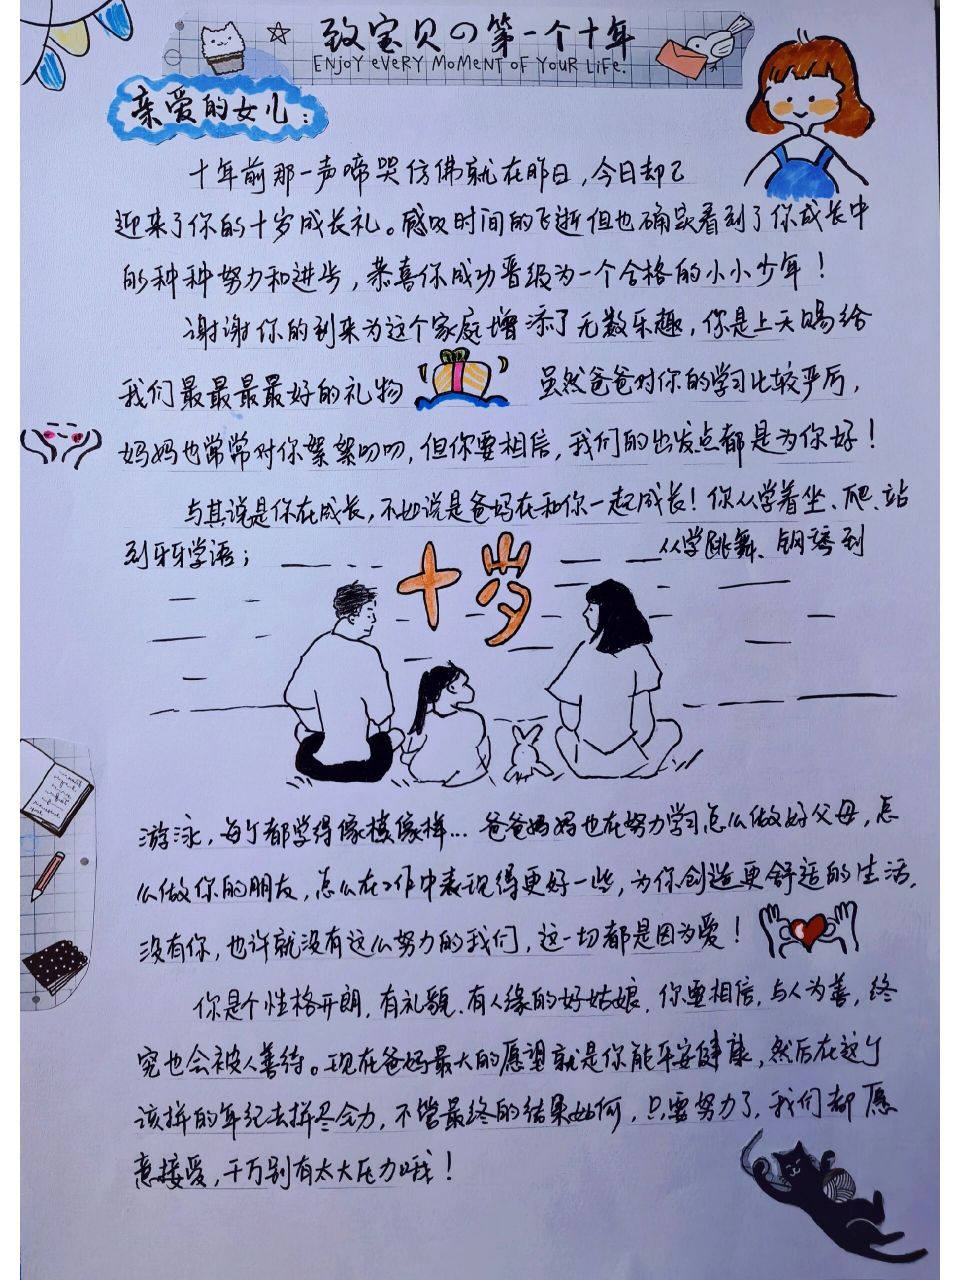 致宝贝の第一个十年
ENJOY EVERY MOMENT OF YOUR LIFE.
亲爱的女儿：
十年前那一声啼哭仿佛就在昨日，今日却已
迎来了你的十岁成长礼。感叹时间的飞逝但也确实看到了你成长中
的种种努力和进步，恭喜你成功晋级为一个合格的小小少年！
谢谢你的到来为这个家庭增添了无数乐趣，你是上天赐给
我们最最最最好的礼物 虽然爸爸对你的学习比较严厉，
妈妈也常常对你絮絮叨叨，但你要相信，我们的出发点都是为你好！
与其说是你在成长，不如说是爸妈在和你一起成长！你从学着坐、爬、站
到牙牙学语；从学跳舞、钢琴到
十岁
游泳，每个都学得像模像样...爸爸妈妈也在努力学习怎么做好父母，怎
么做你的朋友，怎么在工作中表现得更好一些，为你创造更舒适的生活，
没有你，也许就没有这么努力的我们，这一切都是因为爱！
你是个性格开朗，有礼貌、有人缘的好姑娘，你要相信，与人为善，终
究也会被人善待。现在爸妈最大的愿望就是你能平安健康，然后在这个
该拼的年纪去拼尽全力，不管最终的结果如何，只要努力了，我们都愿
意接受，千万别有太大压力哦！